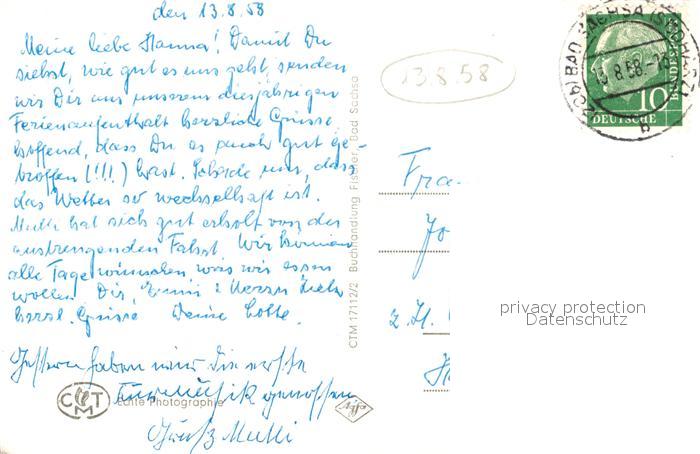 den 13.8.58
Meine liebe Hanna! Damit Du
siehst, wie gut es uns geht, senden
wir Dir aus unserem diesjährigen
Ferienaufenthalt herzliche Grüsse
hoffend, dass Du es auch gut ge-
troffen (!!!) hast. Schade nur, dass
das Wetter so wechselhaft ist.
Mutti hat sich gut erholt von der
anstrengenden Fahrt. Wir können
alle Tage wünschen was wir essen
wollen. Dir,
herzl. Grüsse Deine Lotte.
Gestern haben wir die erste
Kurmusik genossen
Gruß Mutti
CTM 17112/2 Buchhandlung Fischer, Bad Sachsa
CTM
Echte Photographie
Agfa
13.8.58
BAD SACHSA (SÜDHARZ)
13.8.58
b
10
DEUTSCHE
BUNDES
Frau
z. Zt.
privacy protection
Datenschutz